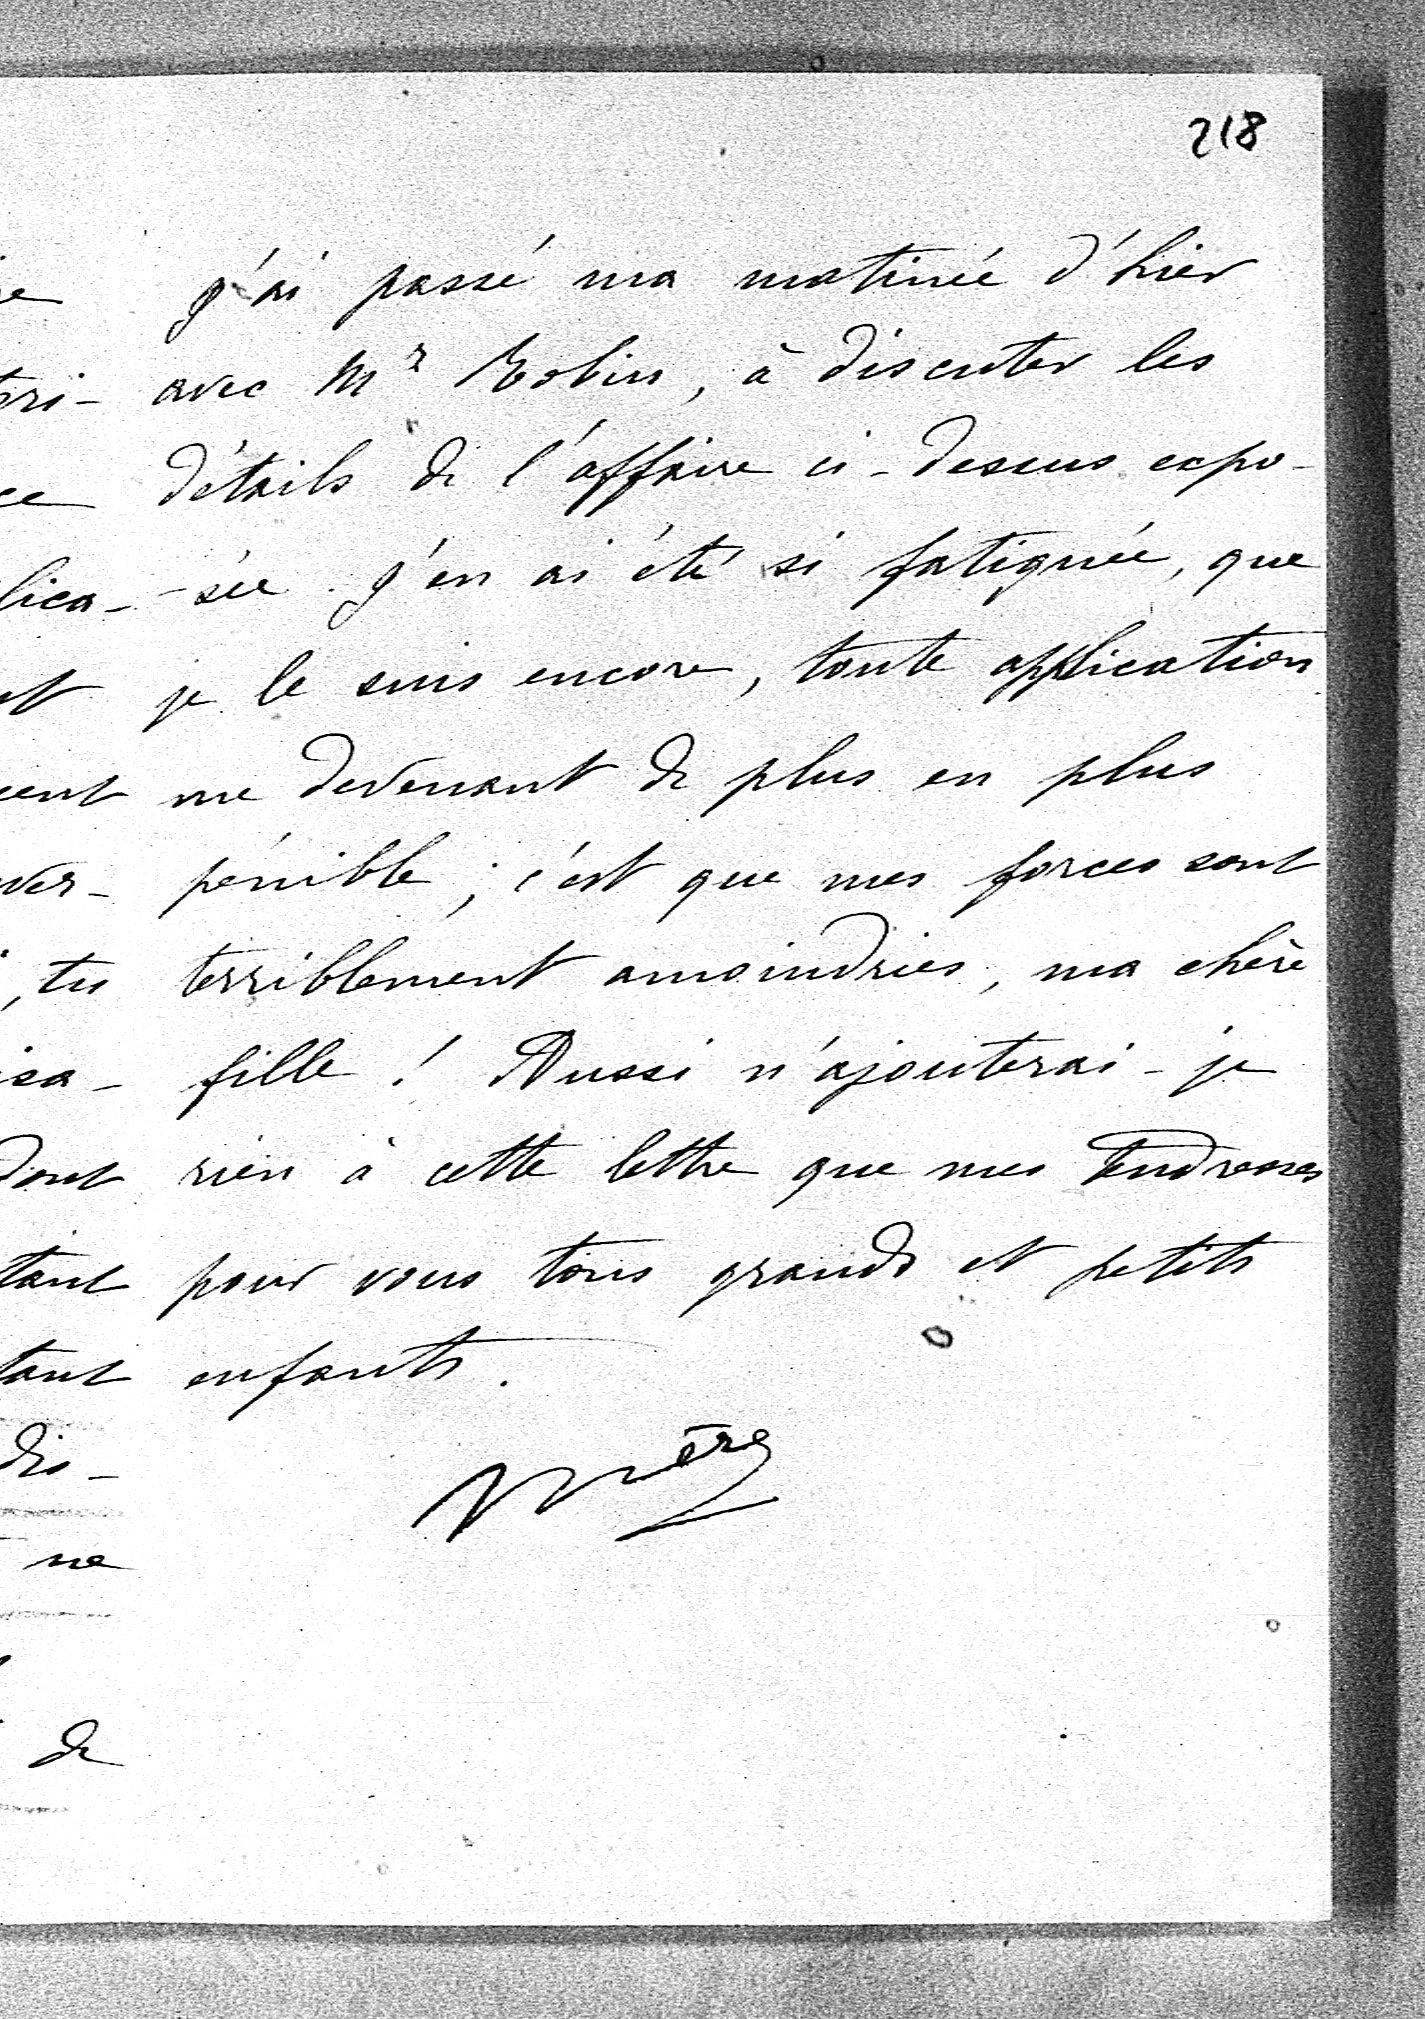 218
J'ai passé ma matinée d'hier
avec Mr Robin, à discuter les
détails de l'affaire ci-dessus expo-
-sée. J'en ai été si fatiguée, que
je le suis encore, toute application
me devenant de plus en plus
pénible ; c'est que mes forces sont
terriblement amoindries, ma chère
fille ! Aussi n'ajouterai-je
rien à cette lettre que mes tendresses
pour vous tous grands et petits
enfants.
Mère
ce
lica-
ent
ver-
, tu
isa-
dont
tant
tant
dis-
ne
de